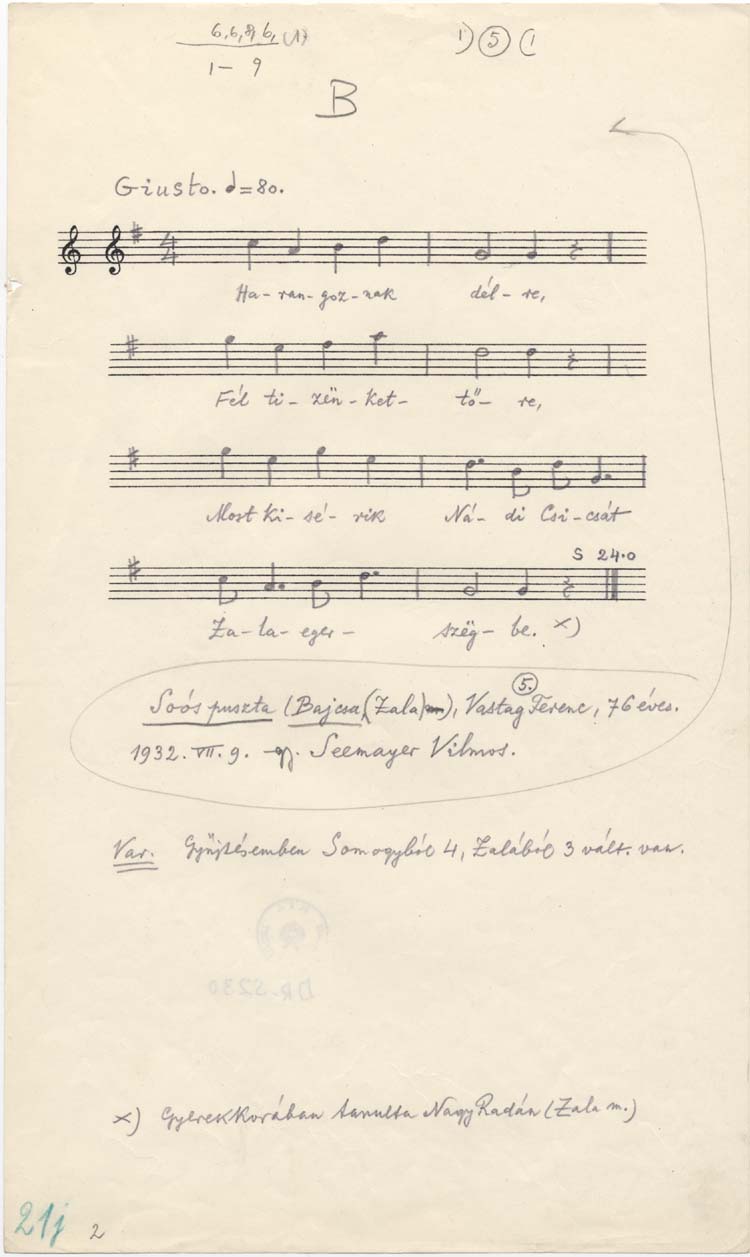 6, 6, 8, 6, (1)
1 – 9
1) 5 (1
B
Giusto. = 80.
4
4
Ha-ran-goz-nak dél-re,
Fél ti-zën-ket-tő-re,
Most ki-sé-rik Ná-di Csi-csát
S 24.0
Za-la-eger-szëg-be. x)
5.
Soós puszta (Bajcsa (Zala)m), Vastag Ferenc, 76 éves.
1932. VII. 9. gy. Seemayer Vilmos.
Var. Gyűjtésemben Somogyból 4, Zalából 3 vált. van.
DR. S230
x) Gyerekkorában tanulta Nagy Radán (Zala m.)
21j 2